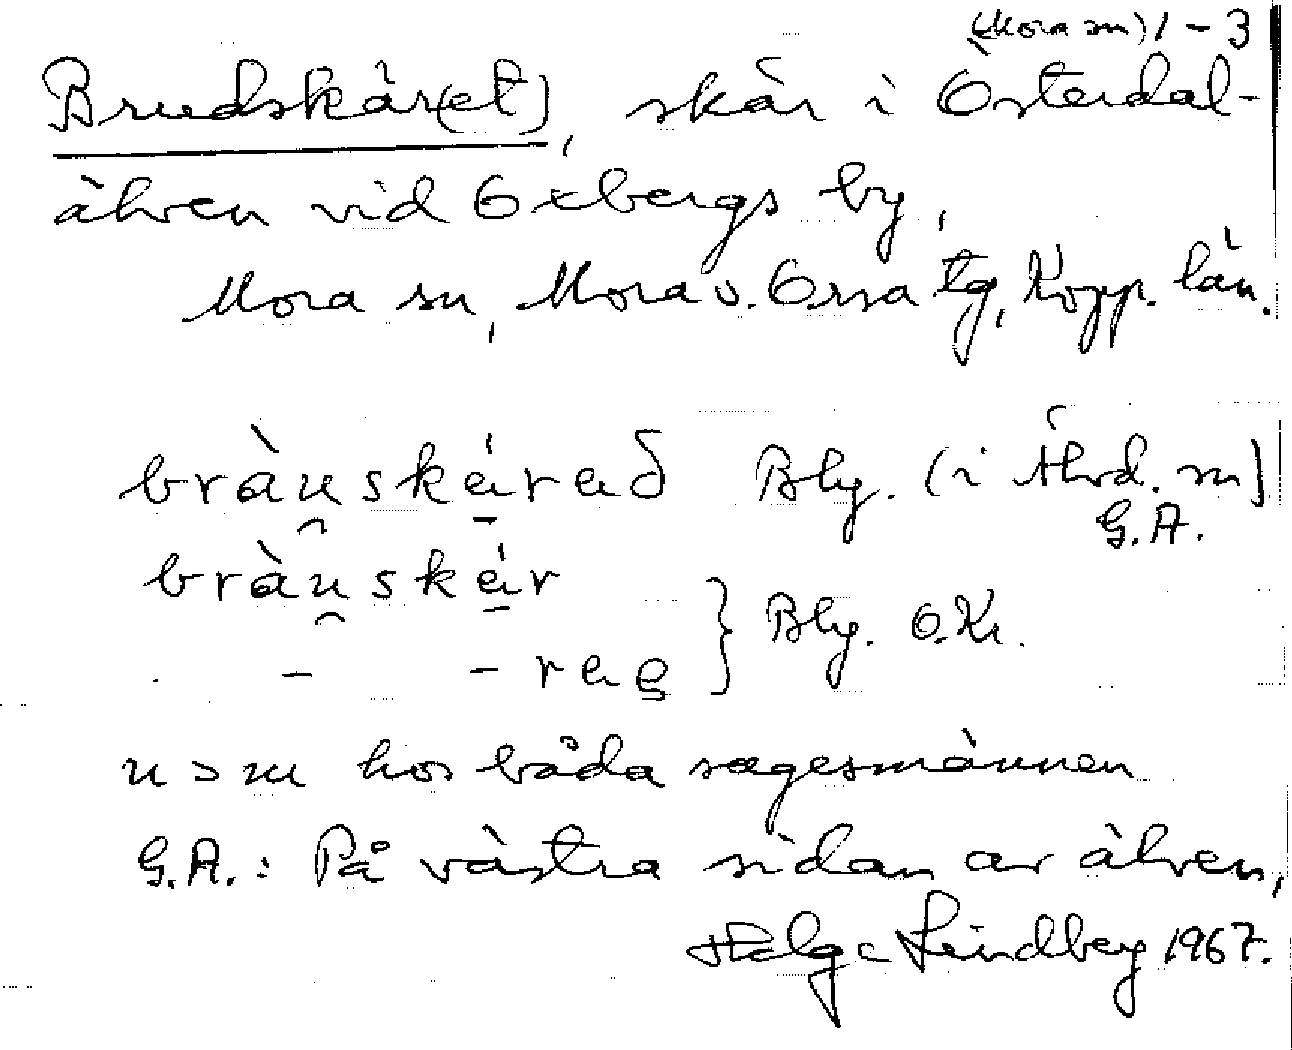 (Mora sn) 1-3
Brudskär(et), skär i Österdal-
älven vid Oxbergs by,
Mora sn, Mora o. Orsa tg, Kopp. län.
bràu̯skérað Blg. (i Älvd. sn)
G.A.
bràu̯skér
- - rae } Blg. O.Kr.
u > u hos båda sagesmännen
G.A.: På västra sidan av älven,
Helge Lindberg 1967.